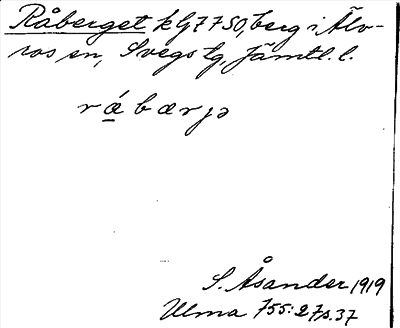 Råberget kG7750, berg i Älv-
ros sn, Svegs tg, Jämtl. l.
rǻbærjə
S. Åsander 1919
Ulma 755:27 s. 37